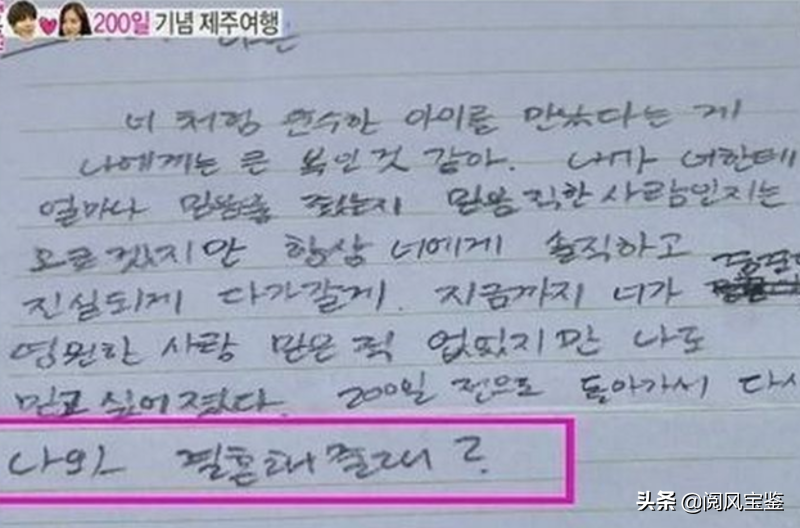 200일 기념 제주여행
너 처럼 순수한 아이를 만났다는 게
나에게는 큰 복인 것 같아. 내가 너한테
얼마나 믿음을 줬는지 믿음 직한 사람인지는
모르겠지만 항상 너에게 솔직하고
진실되게 다가갈게. 지금까지 너가
영원한 사랑 믿은 적 없었지만 나도
믿고 싶어졌다. 200일 전으로 돌아가서 다시
나와 결혼해 줄래?
头条 @阅风宝鉴